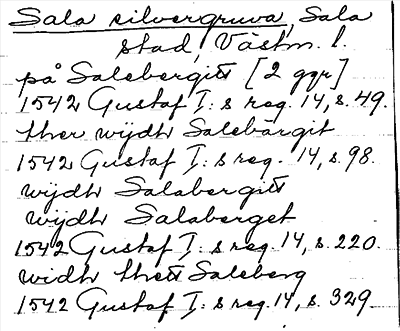 Sala silvergruva, Sala
stad, Västm. l.
på Salebergitt [2 ggr]
1542 Gustaf I: s reg. 14, s. 49.
ther wijdh Salebärgit
1542 Gustaf I: s reg. 14, s. 98.
wijdh Salabergitt
wijdh Salaberget
1542 Gustaf I: s reg. 14, s. 220.
widh thett Saleberg
1542 Gustaf I: s reg. 14, s. 329.